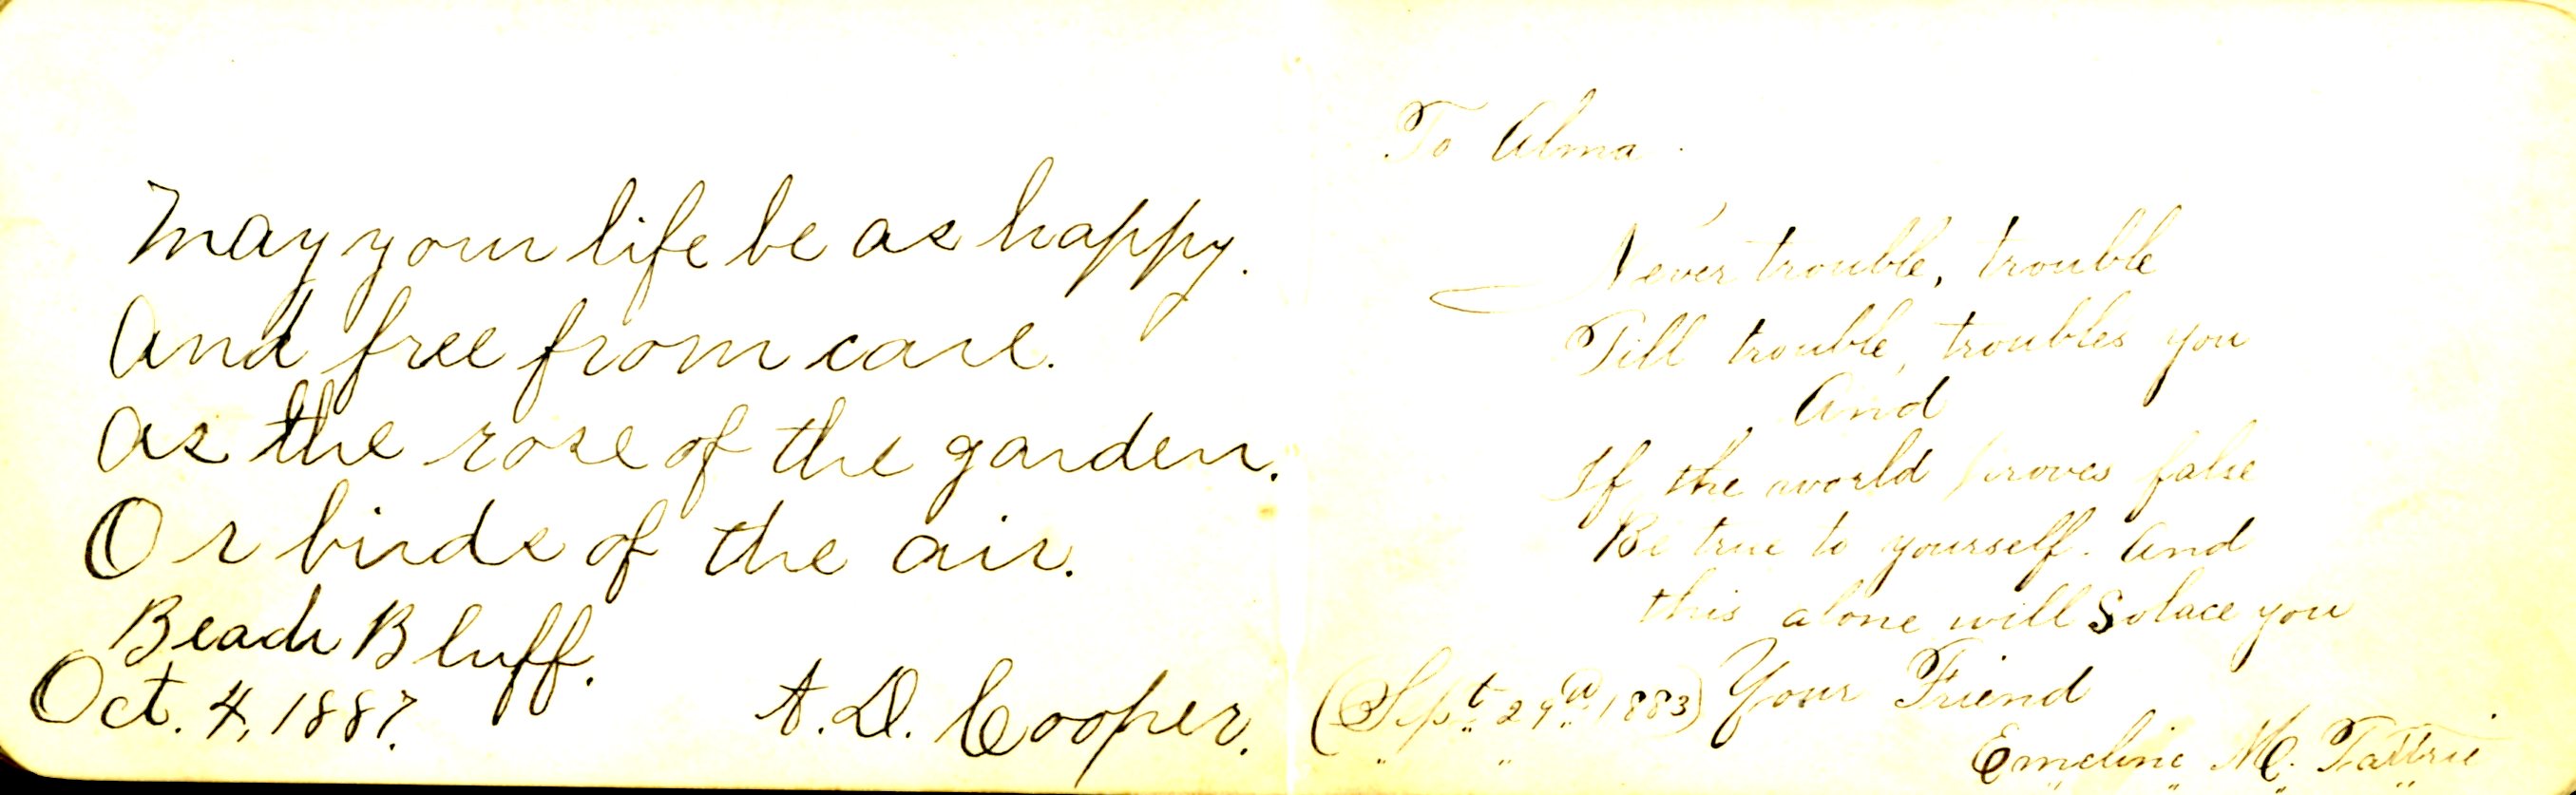 May your life be as happy.
And free from care.
As the rose of the garden.
Or birds of the air.
Beach Bluff.
Oct. 4, 1887.
A. D. Cooper.
To Alma.
Never trouble, trouble
Till trouble, troubles you
And
If the world proves false
Be true to yourself. And
this alone will Solace you
(Sept. 1883) Your Friend
Emeline M. Tattrie